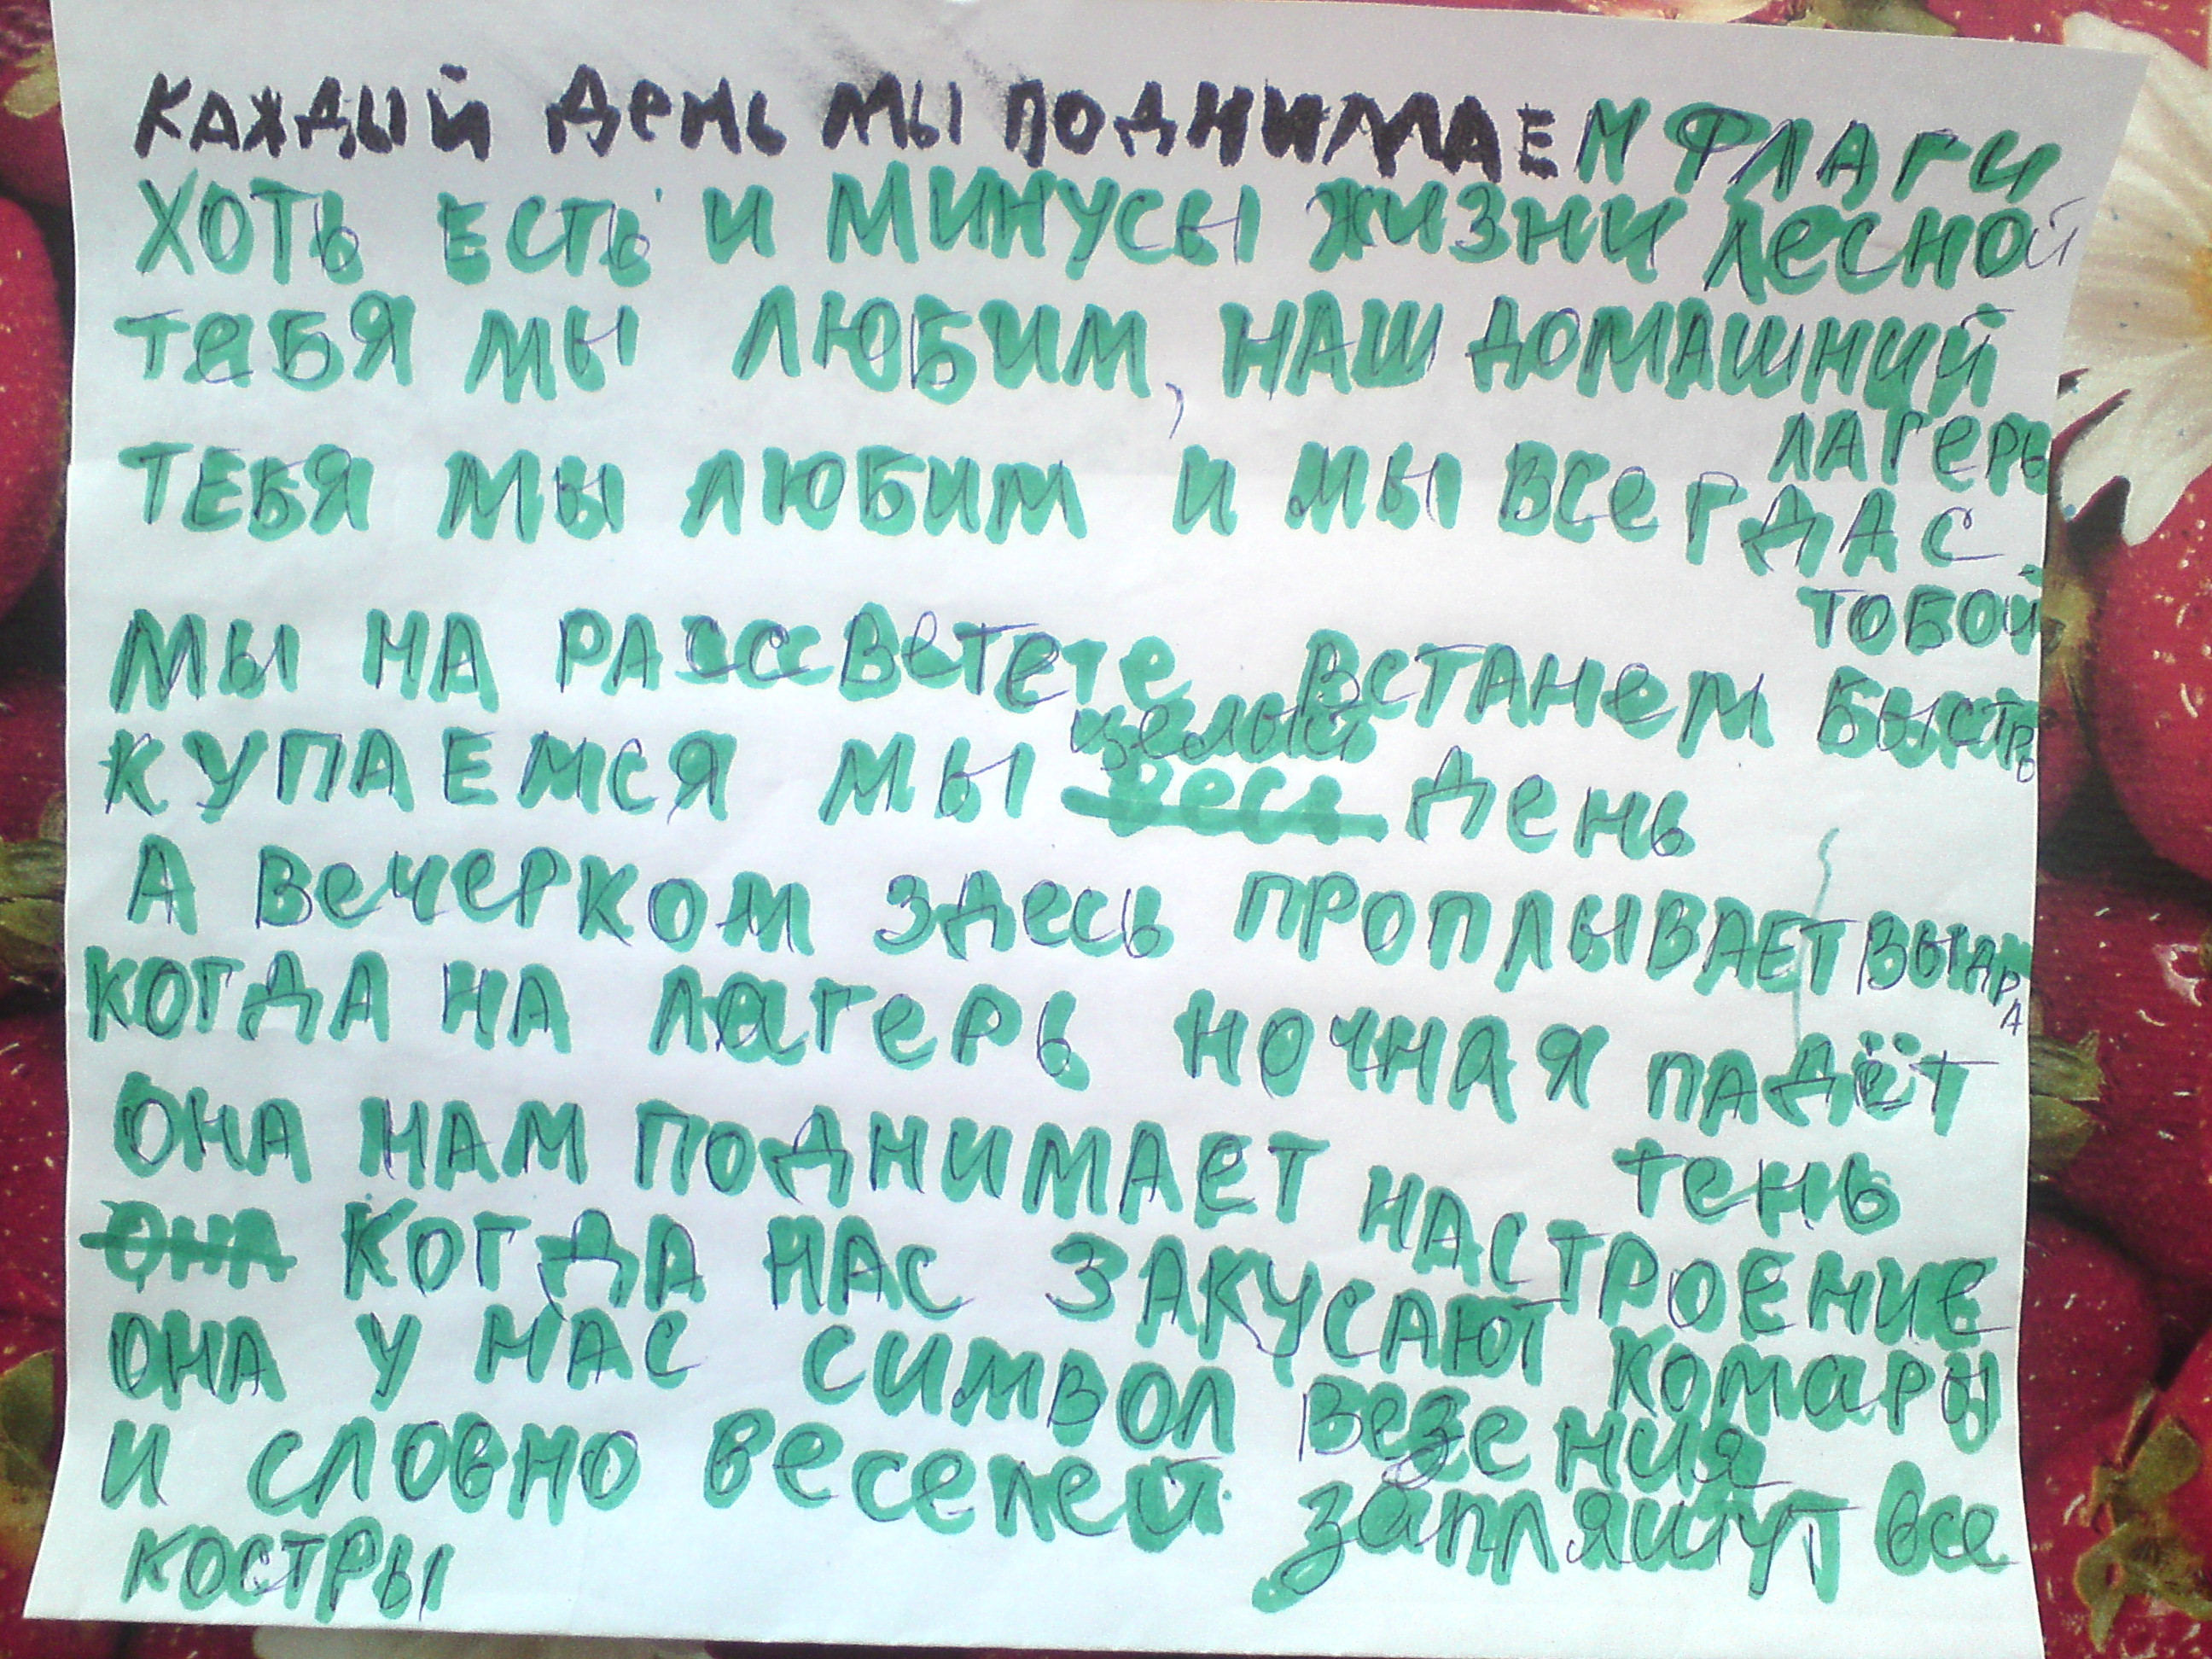 КАЖДЫЙ ДЕНЬ МЫ ПОДНИМАЕМ ФЛАГИ
ХОТЬ ЕСТЬ И МИНУСЫ ЖИЗНИ ЛЕСНОЙ
ТЕБЯ МЫ ЛЮБИМ, НАШ ДОМАШНИЙ
ЛАГЕРЬ
ТЕБЯ МЫ ЛЮБИМ И МЫ ВСЕГДА С
ТОБОЙ
МЫ НА РАССВЕТЕТЕ ВСТАНЕМ БЫСТРО
КУПАЕМСЯ МЫ целый ДЕНЬ
А ВЕЧЕРКОМ ЗДЕСЬ ПРОПЛЫВАЕТ ВЫДРА
КОГДА НА ЛАГЕРЬ НОЧНАЯ ПАДЁТ
ТЕНЬ
ОНА НАМ ПОДНИМАЕТ НАСТРОЕНИЕ
ОНА КОГДА НАС ЗАКУСАЮТ КОМАРЫ
ОНА У НАС СИМВОЛ ВЕЗЕНИЯ
И СЛОВНО ВЕСЕЛЕЙ ЗАПЛЯШУТ ВСЕ
КОСТРЫ